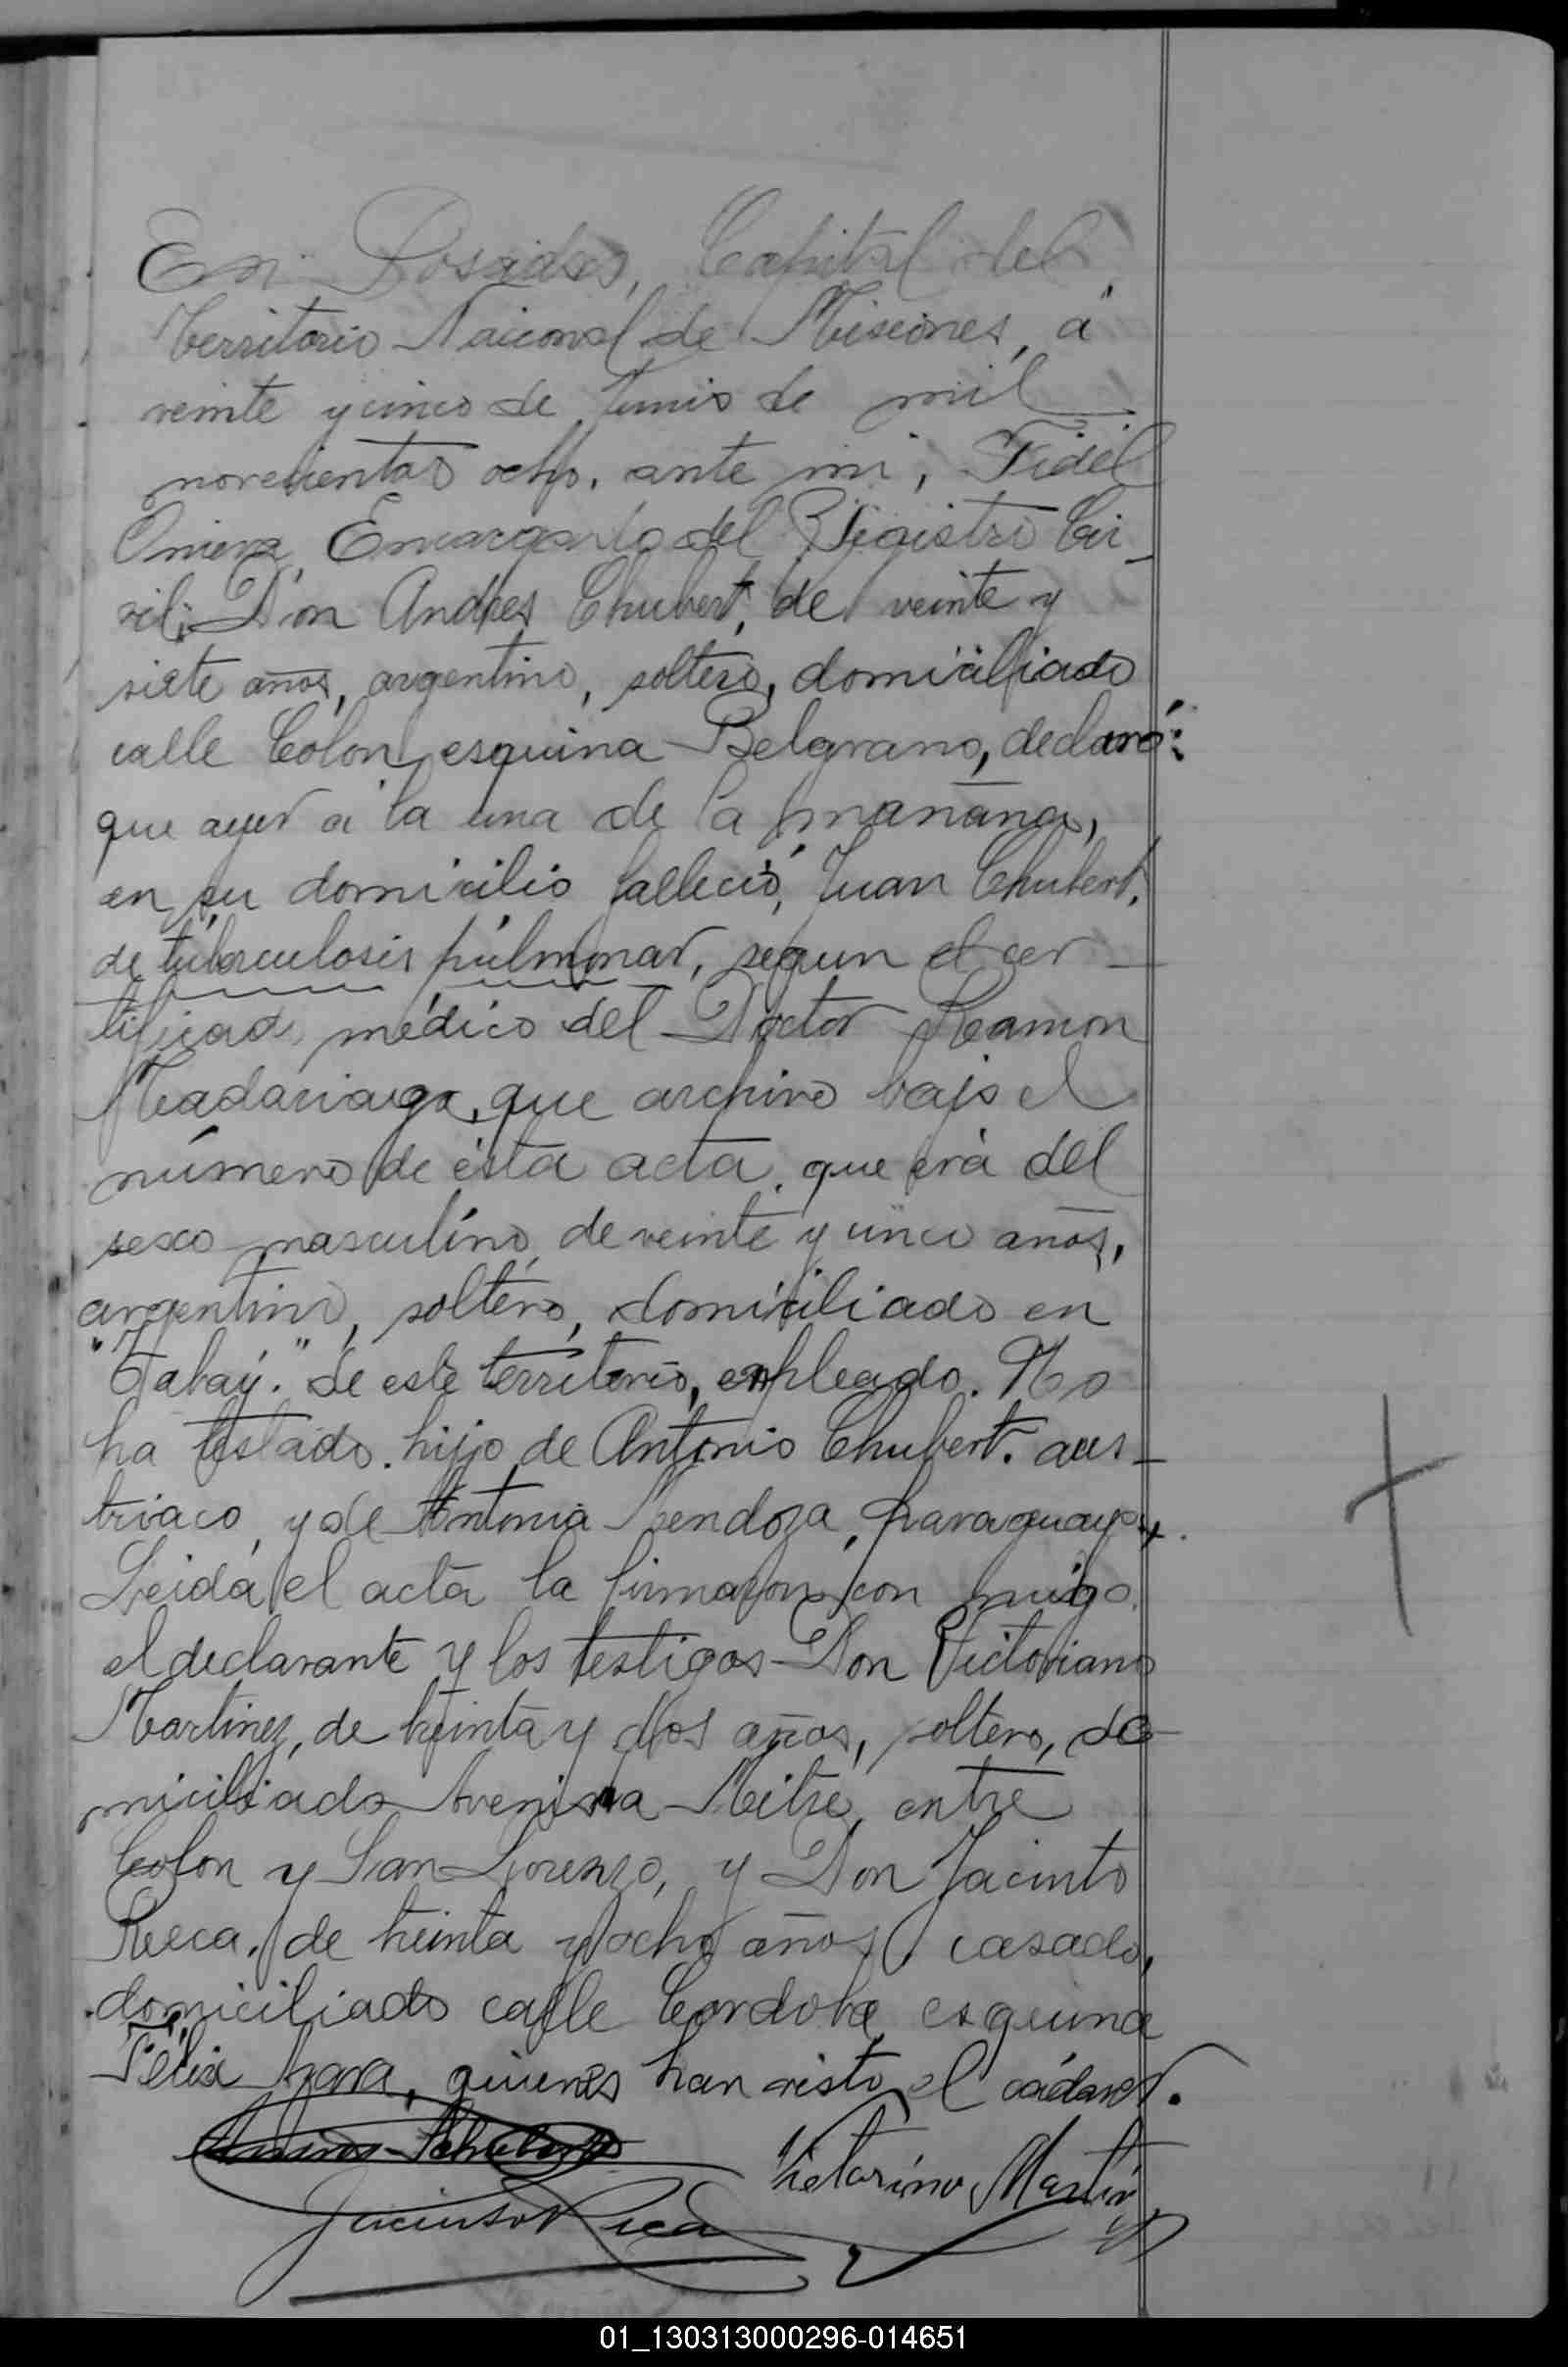 En Posadas, Capital del
Territorio Nacional de Misiones, á
veinte y cinco de Junio de mil
novecientos ocho. ante mi, Fidel
Encargado del Registro Ci-
vil; Don Andres Chubert, de veinte y
siete años, argentino, soltero, domiciliado
calle Colon esquina Belgrano, declaró:
que ayer a la una de la mañana,
en su domicilio falleció, Juan Chubert,
de tuberculosis pulmonar, segun el cer-
tificado médico del Doctor Ramon
Madariaga, que archivo bajo el
número de ésta acta. que era del
sexo masculino, de veinte y cinco años,
argentino, soltero, domiciliado en
"Tabay." de este territorio, empleado. No
ha testado. hijo de Antonio Chubert. aus-
triaco, y de Antonia Mendoza, paraguaya.
Leida el acta la firmaron con migo.
el declarante y los testigos Don Victoriano
Martinez, de treinta y dos años, soltero, do-
miciliado Avenida Mitre, entre
Colon y San Lorenzo, y Don Jacinto
Reca. de treinta y ocho años, casado,
domiciliado calle Cordoba, esquina
Felix Azara, quienes han visto el cadaver.
Andres Schubert
Victorino Martin
Jacinto Reca
01_130313000296-014651